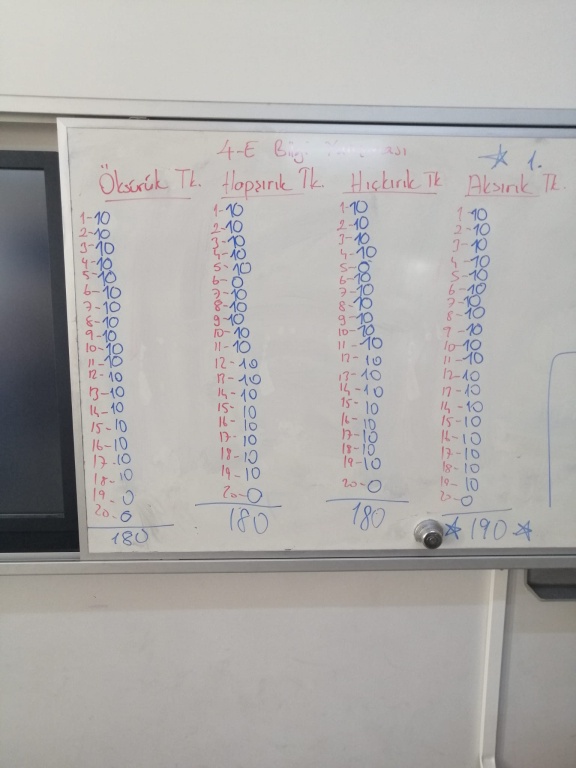 4-E Bilgi Yarışması
☆ 1.
Öksürük Tk.
1-10
2-10
3-10
4-10
5-10
6-10
7-10
8-10
9-10
10-10
11-10
12-10
13-10
14-10
15-10
16-10
17-10
18-10
19-0
20-0
180
Hapşırık Tk.
1-10
2-10
3-10
4-10
5-10
6-0
7-10
8-10
9-10
10-10
11-10
12-10
13-10
14-10
15-10
16-10
17-10
18-10
19-10
20-0
180
Hıçkırık Tk
1-10
2-10
3-10
4-10
5-0
6-10
7-10
8-10
9-10
10-10
11-10
12-10
13-10
14-10
15-10
16-10
17-10
18-10
19-10
20-0
180
Aksırık Tk.
1-10
2-10
3-10
4-10
5-10
6-10
7-10
8-10
9-10
10-10
11-10
12-10
13-10
14-10
15-10
16-10
17-10
18-10
19-10
20-0
☆ 190 ☆